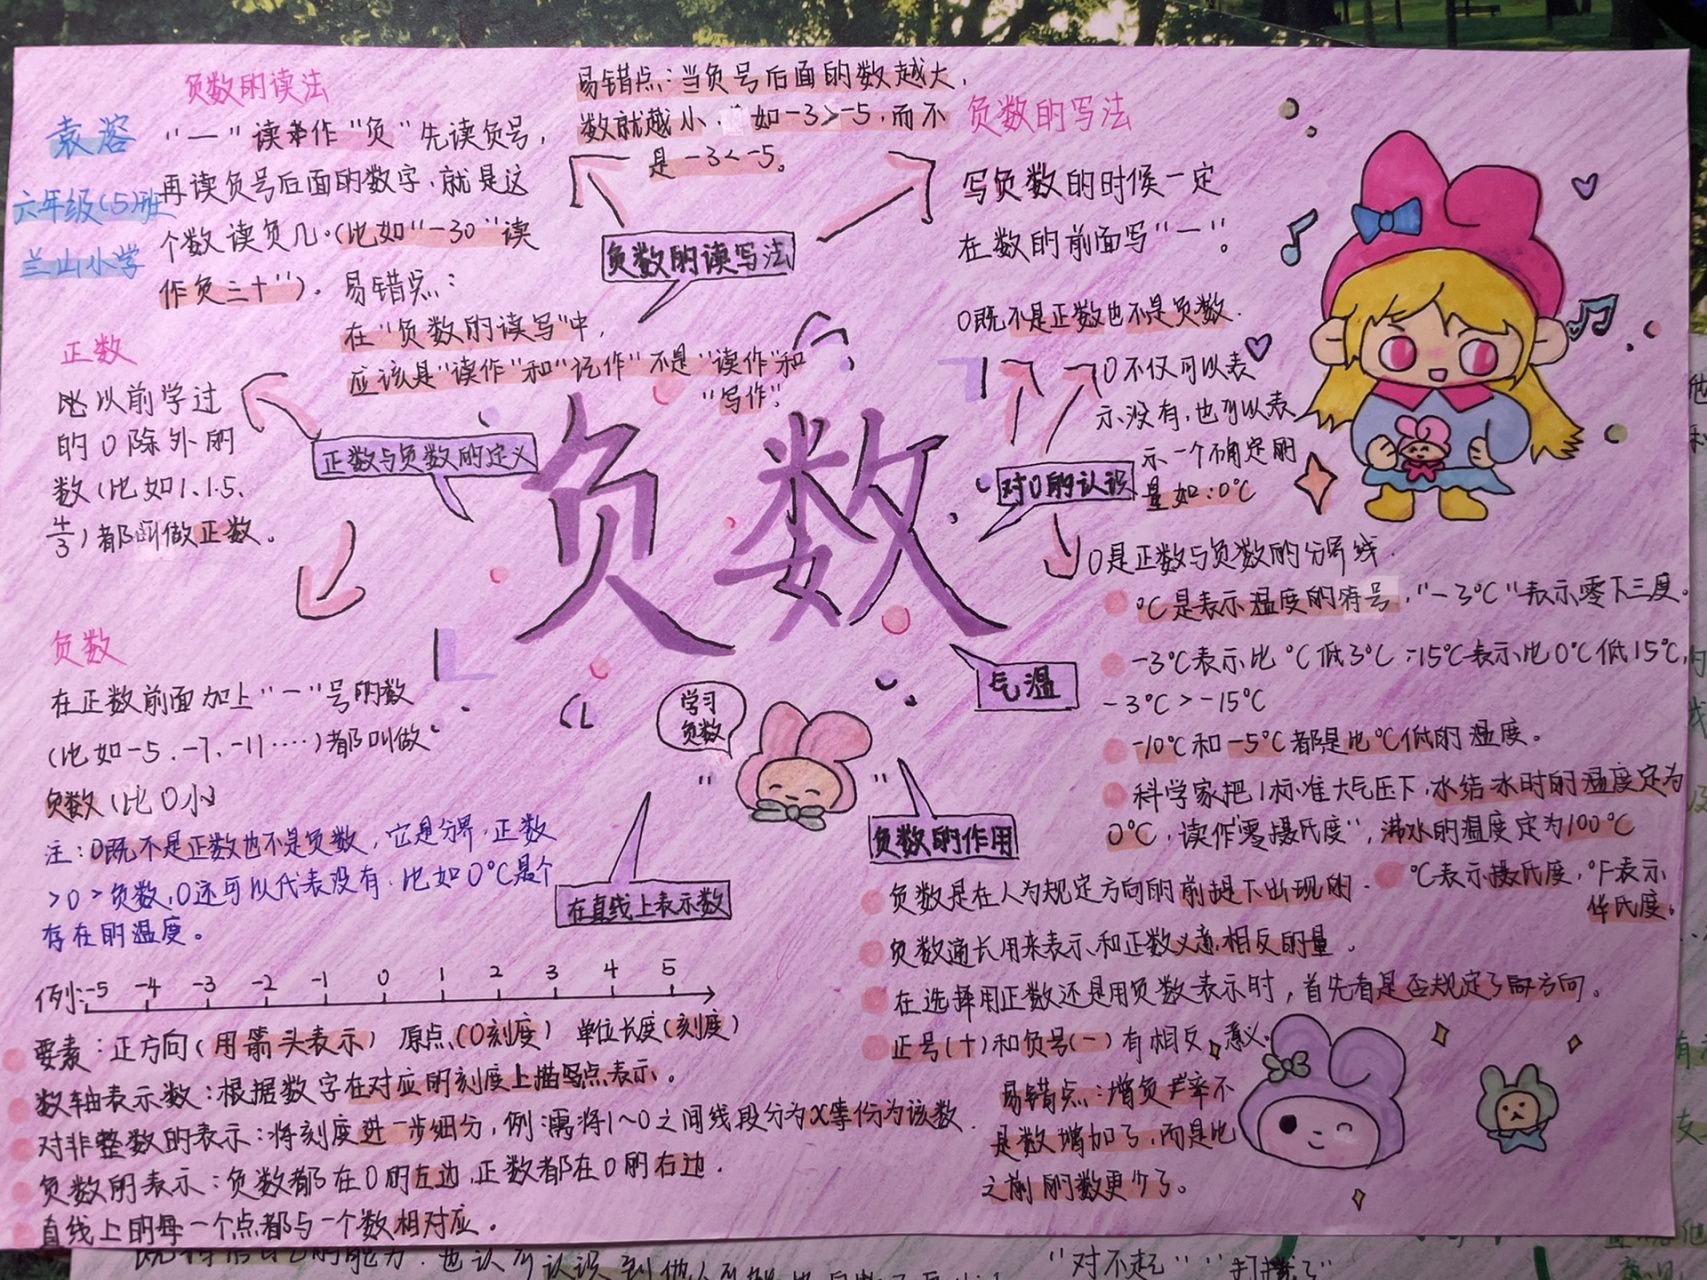 袁溶
六年级(5)班
兰山小学
负数的读法
“—”读作“负”先读负号，
再读负号后面的数字，就是这
个数读负几。(比如“-30”读
作负三十”)。
易错点：
在“负数的读写”中，
应该是“读作”和“记作”不是“读作”和
“写作”
易错点：当负号后面的数越大，
数就越小，如-3>-5，而不
是-3<-5。
负数的读写法
负数的写法
写负数的时候一定
在数的前面写“—”。
正数
比以前学过
的0除外的
数(比如1、1.5、
4/3)都叫做正数。
正数与负数的定义
负数
在正数前面加上“—”号的数
(比如-5、-7、-11……)都叫做
负数(比0小)
注：0既不是正数也不是负数，它是分界，正数
>0>负数，0还可以代表没有，比如0℃是个
存在的温度。
负数
0既不是正数也不是负数．
0不仅可以表
示没有，也可以表
示一个确定的
量如：0℃
对0的认识
0是正数与负数的分界线．
气温
℃是表示温度的符号，“-3℃”表示零下三度。
-3℃表示比℃低3℃；-15℃表示比0℃低15℃，
-3℃>-15℃
-10℃和-5℃都是比℃低的温度。
科学家把1标准大气压下，水结冰时的温度定为
0℃，读作“零摄氏度”，沸水的温度定为100℃
℃表示摄氏度，℉表示
华氏度。
学习
负数
负数的作用
负数是在人为规定方向的前提下出现的．
负数通长用来表示和正数义意相反的量．
在选择用正数还是用负数表示时，首先看是否规定了正方向。
正号(+)和负号(—)有相反意义．
易错点：增负产率不
是数增加了，而是比
之前的数更少了。
在直线上表示数
例：-5 -4 -3 -2 -1 0 1 2 3 4 5
要素：正方向(用箭头表示) 原点(0刻度) 单位长度(刻度)
数轴表示数：根据数字在对应的刻度上描写点表示。
对非整数的表示：将刻度进一步细分，例：需将1~0之间线段分为x等份为该数．
负数的表示：负数都在0的左边，正数都在0的右边．
直线上的每一个点都与一个数相对应。
“对不起”